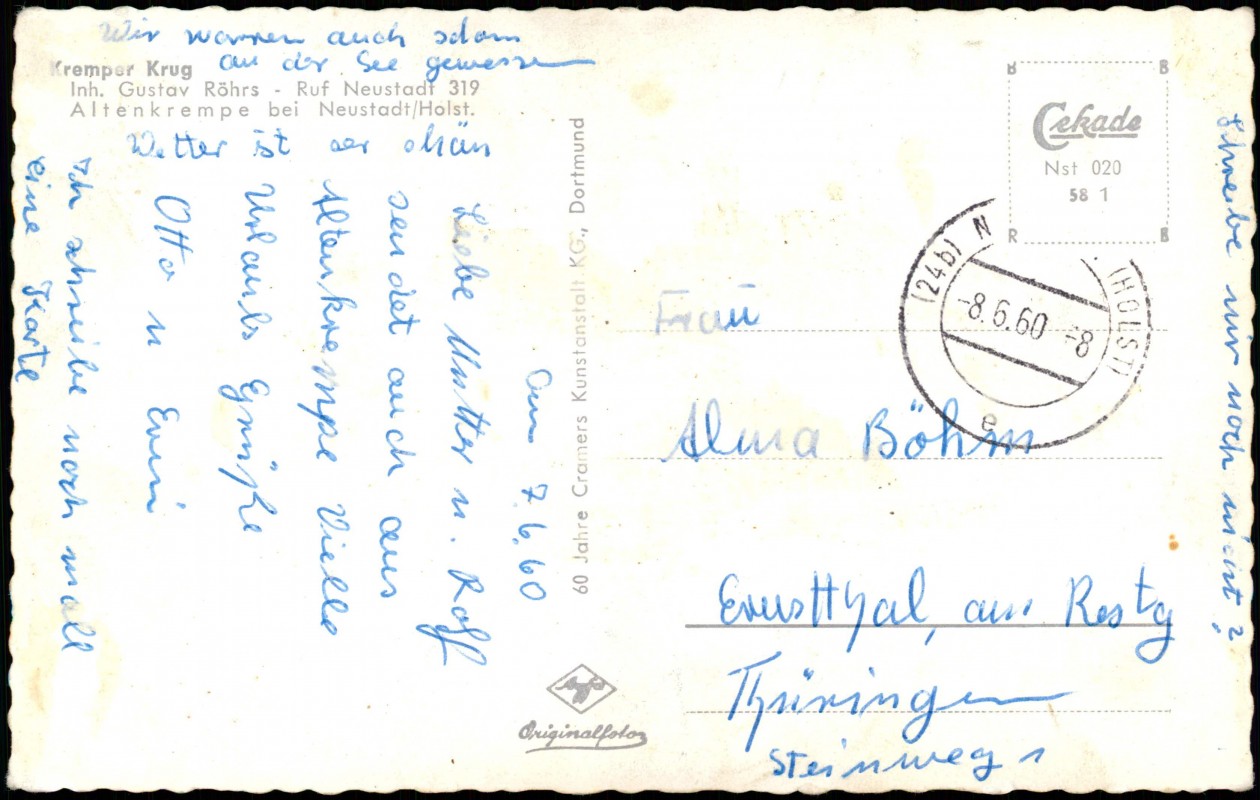 Wir warren auch schon
an der See gewessen
Kremper Krug
Inh. Gustav Röhrs - Ruf Neustadt 319
Altenkrempe bei Neustadt/Holst.
Wetter ist
Am 7.6.60
Liebe Mutter u. Rolf
sendet auch aus
Altenkrempe Vielle
Urlaubs Grüße
Otto u Emmi
Ich schreibe noch mall
eine Karte
60 Jahre Cramers Kunstanstalt KG., Dortmund
Agfa
Originalfoto
Cekade
Nst 020
58 1
B B
R B
(24b) N (HOLST)
-8.6.60 -8
e
Frau
Alma Böhm
Ernstthal, am Restg
Thüringen
Steinweg 1
Schreibe mir noch nicht?